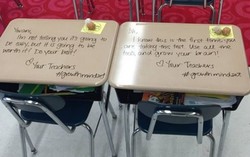 I'm not telling you it's going to
be easy, but it is going to be
worth it! Do your best!
♡ Your Teachers
#growthmindset
I know this is the first time you
are taking this test. You all are
and grow your brain!
♡ Your Teachers
#growthmindset